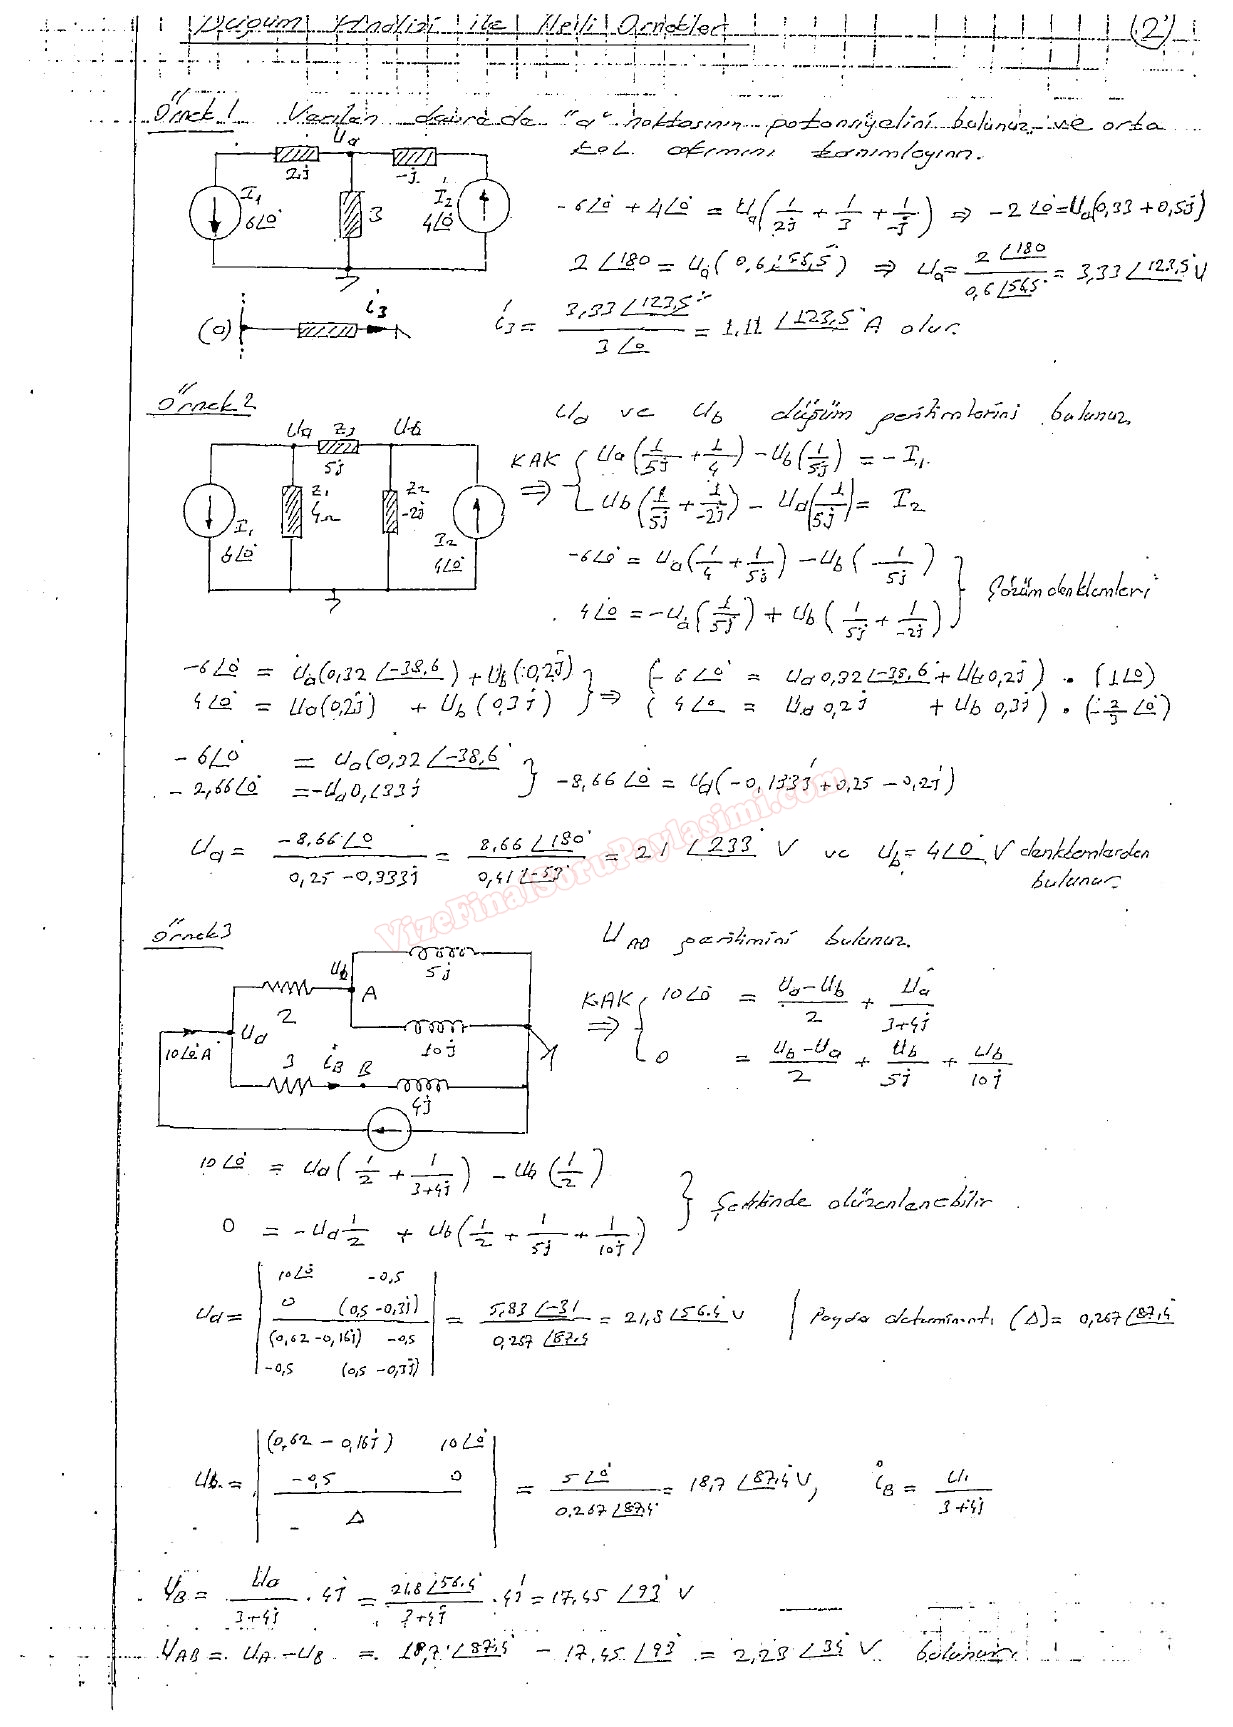 Düğüm Analizi ile İlgili Örnekler (2)
Örnek 1 Verilen devrede "a" noktasının potansiyelini bulunuz ve orta
kol akımını tanımlayın.
Ua
2j -j
I1 6∠0° 3 I2 4∠0°
-6∠0° + 4∠0° = Ua(1/2j + 1/3 + 1/-j) ⇒ -2∠0° = Ua(0,33 + 0,5j)
2∠180 = Ua(0,6∠56,5°) ⇒ Ua = 2∠180 / 0,6∠56,5° = 3,33∠123,5° V
(a) i3
i3 = 3,33∠123,5° / 3∠0 = 1,11∠123,5° A olur.
Örnek 2 Ua ve Ub düğüm gerilimlerini bulunuz.
Ua Z3 Ub
5j
Z1 4Ω Z2 -2j
I1 6∠0° I2 4∠0°
KAK ⇒ { Ua(1/5j + 1/4) - Ub(1/5j) = -I1
Ub(1/5j + 1/-2j) - Ua(1/5j) = I2
-6∠0° = Ua(1/4 + 1/5j) - Ub(1/5j)
4∠0° = -Ua(1/5j) + Ub(1/5j + 1/-2j) } Çözüm denklemleri
-6∠0° = Ua(0,32∠-38,6) + Ub(0,2j) } ⇒ (-6∠0° = Ua 0,32∠-38,6° + Ub 0,2j) . (1∠0)
4∠0° = Ua(0,2j) + Ub(0,3j) (4∠0 = Ua 0,2j + Ub 0,3j) . (-2/3 ∠0°)
-6∠0° = Ua(0,32∠-38,6°
-2,66∠0° = -Ua 0,133j } -8,66∠0° = Ua(-0,133j + 0,25 - 0,2j)
Ua = -8,66∠0 / 0,25 - 0,333j = 8,66∠180° / 0,41∠-53° = 21∠233° V ve Ub = 4∠0° V denklemlerden
bulunur.
Örnek 3 UAB gerilimini bulunuz.
5j
Ub A
2
10j
Ua
10∠0° A
3 iB B
4j
KAK ⇒ { 10∠0° = Ua-Ub / 2 + Ua / 3+4j
0 = Ub-Ua / 2 + Ub / 5j + Ub / 10j
10∠0° = Ua(1/2 + 1/3+4j) - Ub(1/2)
0 = -Ua 1/2 + Ub(1/2 + 1/5j + 1/10j) } Şeklinde düzenlenebilir.
Ua = | 10∠0° -0,5
0 (0,5 - 0,3j)
(0,62 - 0,16j) -0,5
-0,5 (0,5 - 0,3j) | = 5,83∠-31 / 0,267∠87,4 = 21,8∠56.4° V | Payda determinantı (Δ) = 0,267∠87,4°
Ub = | (0,62 - 0,16j) 10∠0°
-0,5 0
Δ | = 5∠0° / 0,267∠87,4° = 18,7∠87,4° V, iB = U1 / 3+4j
UB = Ua / 3+4j . 4j = 21,8∠56.4° / 3+4j . 4j = 17,45∠93° V
UAB = UA - UB = 18,7∠87,4° - 17,45∠93° = 2,23∠34° V bulunur.
VizeFinalSoruPaylasimi.com